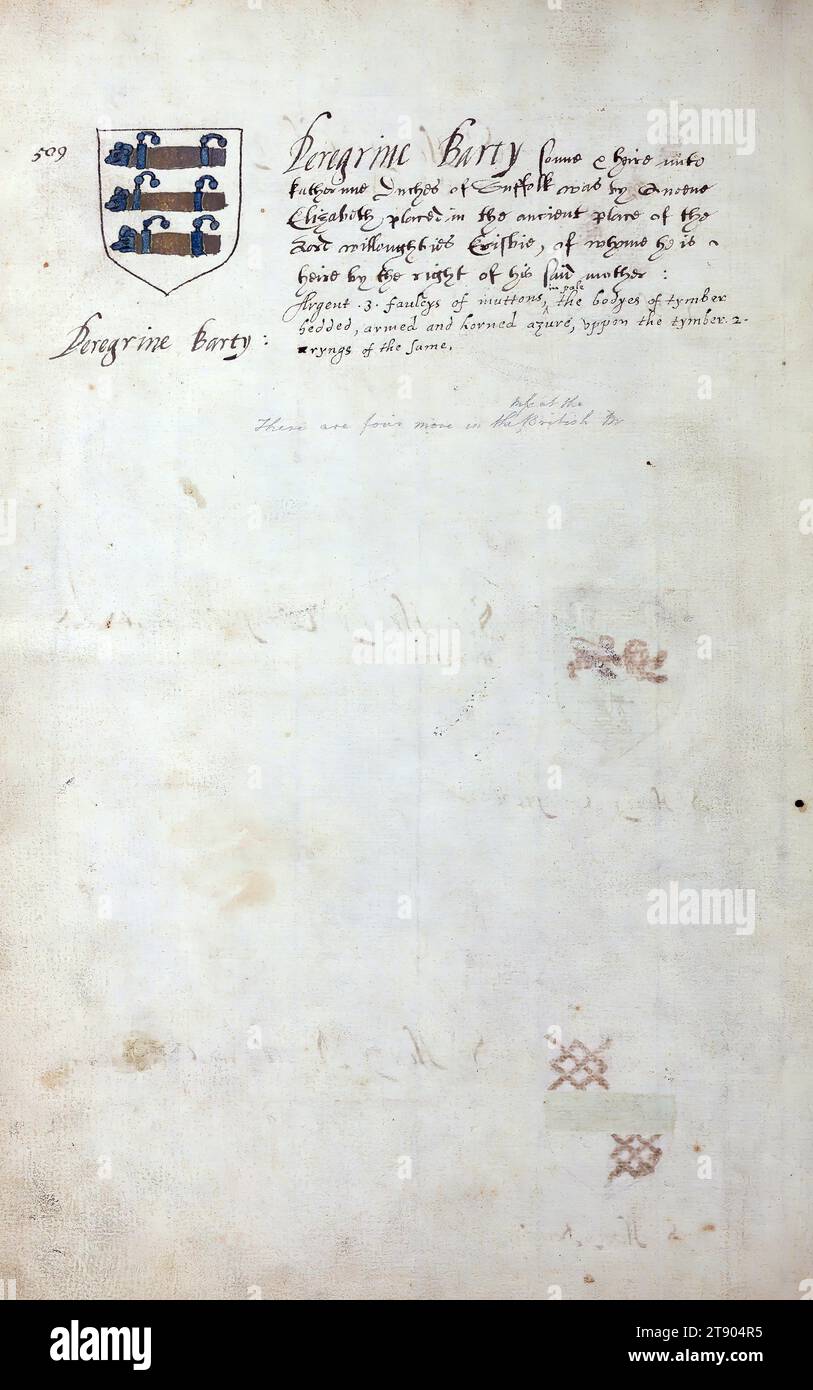 509
Peregrine Barty sonne & heire unto
Katherinne Duches of Suffolk was by Queene
Elizabeth, placed in the ancient place of the
Lord willoughties Erisbie, of whome he is
heire by the right of his said mother :
in pale
Argent .3. fauleys of muttons, the bodyes of tymber
hedded, armed and horned azure, uppon the tymber .2.
ryngs of the same.
Peregrine Barty :
MS at the
There are four more in the British M
alamy
alamy
alamy
alamy
alamy
alamy
Image ID: 2T904R5
www.alamy.com